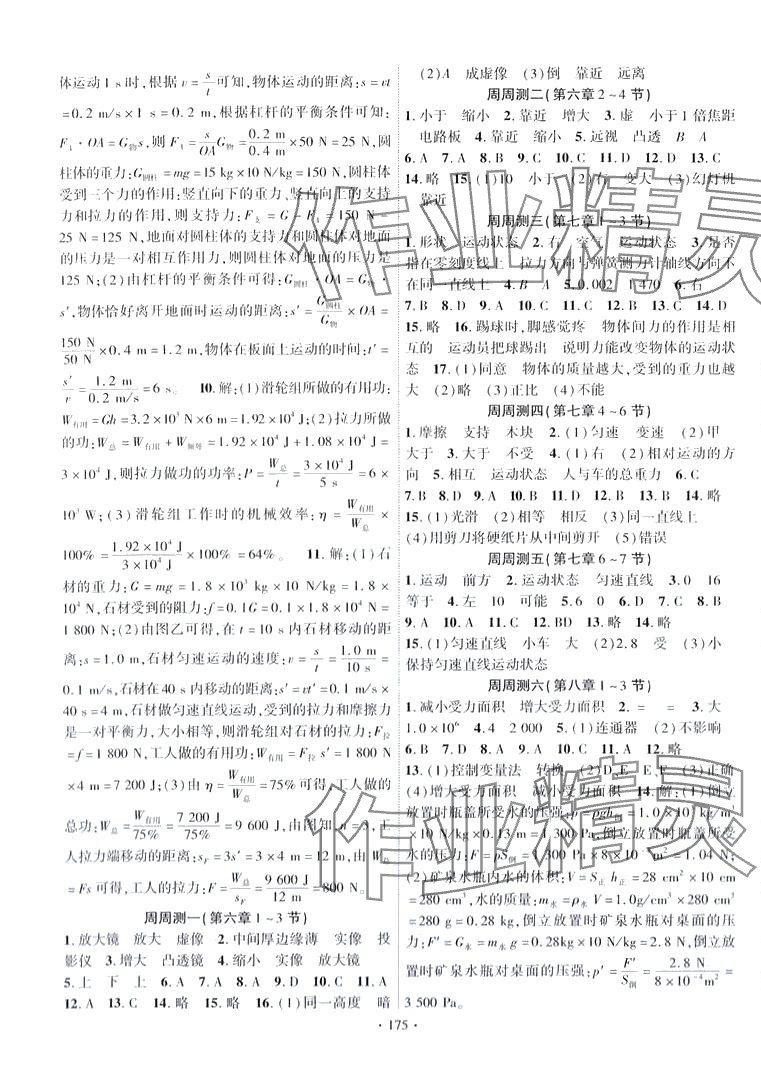 体运动 1 s时,根据 v = s/t 可知,物体运动的距离:s = vt
= 0.2 m/s × 1 s = 0.2 m,根据杠杆的平衡条件可知:
F_A · OA = G物s,则 F_A = s/OA G物 = 0.2 m/0.4 m × 50 N = 25 N;圆
柱体的重力:G圆柱 = mg = 15 kg × 10 N/kg = 150 N,圆柱体
受到三个力的作用:竖直向下的重力、竖直向上的支持
力和拉力的作用,则支持力:F支 = G − F_A = 150 N −
25 N = 125 N,地面对圆柱体的支持力和圆柱体对地面
的压力是一对相互作用力,则圆柱体对地面的压力是
125 N;(2)由杠杆的平衡条件可得:G圆柱 · OA = G物 ·
s′,物体恰好离开地面时运动的距离:s′ = G圆柱/G物 × OA =
150 N/50 N × 0.4 m = 1.2 m,物体在板面上运动的时间:t′ =
s′/v = 1.2 m/0.2 m/s = 6 s。 10. 解:(1)滑轮组所做的有用功:
W有用 = Gh = 3.2 × 10³ N × 6 m = 1.92 × 10⁴ J;(2)拉力所做
的功:W总 = W有用 + W额外 = 1.92 × 10⁴ J + 1.08 × 10⁴ J =
3 × 10⁴ J,则拉力做功的功率:P = W总/t = 3 × 10⁴ J/5 s = 6 ×
10³ W;(3)滑轮组工作时的机械效率:η = W有用/W总 ×
100% = 1.92 × 10⁴ J/3 × 10⁴ J × 100% = 64%。 11. 解:(1)石
材的重力:G = mg = 1.8 × 10³ kg × 10 N/kg = 1.8 ×
10⁴ N,石材受到的阻力:f = 0.1G = 0.1 × 1.8 × 10⁴ N =
1 800 N;(2)由图乙可得,在 t = 10 s 内石材移动的距
离:s = 1.0 m,石材匀速运动的速度:v = s/t = 1.0 m/10 s =
0.1 m/s,石材在40 s内移动的距离:s′ = vt′ = 0.1 m/s ×
40 s = 4 m;(3)石材做匀速直线运动,受到的拉力和摩擦力
是一对平衡力,大小相等,则滑轮组对石材的拉力:F拉
= f = 1 800 N,工人做的有用功:W有用 = F拉 s′ = 1 800 N
× 4 m = 7 200 J;(3)由 η = W有用/W总 = 75% 可得,工人做的
总功:W总 = W有用/75% = 7 200 J/75% = 9 600 J,由图知,n = 3,工
人拉力端移动的距离:s_F = 3s′ = 3 × 4 m = 12 m,由 W总
= Fs 可得,工人的拉力:F = W总/s_F = 9 600 J/12 m = 800 N。
周周测一(第六章 1~3 节)
1. 放大镜 放大 虚像 2. 中间厚边缘薄 实像 投
影仪 3. 增大 凸透镜 4. 缩小 实像 放大镜
5. 上 下 上 6. A 7. A 8. A 9. D 10. C 11. A
12. A 13. C 14. 略 15. 略 16. (1)同一高度 暗
(2)A 成虚像 (3)倒 靠近 远离
周周测二(第六章 2~4 节)
1. 小于 缩小 2. 靠近 增大 3. 虚 小于1倍焦距
电路板 4. 靠近 缩小 5. 远视 凸透 B A
6. A 7. A 8. B 9. C 10. D 11. A 12. D 13. C
14. 略 15. (1)10 小于 (2)右 变大 (3)幻灯机
靠近
周周测三(第七章 1~3 节)
1. 形状 运动状态 2. 右 空气 运动状态 3. 是否
指在零刻度线上 拉力方向与弹簧测力计轴线方向不
在同一直线上 4. B A 5. 0.002 1 470 6. 右
7. B 8. B 9. A 10. C 11. C 12. D 13. C 14. D
15. 略 16. 踢球时,脚感觉疼 物体间力的作用是相
互的 运动员把球踢出 说明力能改变物体的运动状
态 17. (1)同意 物体的质量越大,受到的重力越
大 (2)略 (3)正比 (4)不能
周周测四(第七章 4~6 节)
1. 摩擦 支持 木块 2. (1)匀速 变速 (2)甲
大于 3. 大于 不受 4. (1)右 (2)相对运动的方
向 5. 相互 运动状态 人与车的总重力 6. C
7. B 8. B 9. D 10. C 11. B 12. C 13. B 14. 略
15. (1)光滑 (2)相等 相反 (3)同一直线上
(4)用剪刀将硬纸片从中间剪开 (5)错误
周周测五(第七章 6~7 节)
1. 运动 前方 2. 运动状态 匀速直线 3. 0 16
等于 4. 左 10 可能 5. 6 0 6. D 7. B 8. D
9. A 10. A 11. D 12. BD 13. 略 14. 略
15. (1)匀速直线 小车 大 (2)2.8 受 (3)小
保持匀速直线运动状态
周周测六(第八章 1~3 节)
1. 减小受力面积 增大受力面积 2. = = 3. 大
1.0 × 10⁶ 4. 4 2 000 5. (1)连通器 (2)不影响
6. B 7. D 8. B 9. A 10. C 11. A 12. 略
13. (1)控制变量法 转换 (2)D、E E、F (3)C
(4)增大受力面积 减小受力面积 14. 解:(1)倒立
放置时瓶盖所受水的压强:p = ρgh倒 = 1.0 × 10³ kg/
m³ × 10 N/kg × 0.13 m = 1 300 Pa,倒立放置时瓶盖所受
水的压力:F = pS倒 = 1 300 Pa × 8 × 10⁻⁴ m² = 1.04 N;
(2)矿泉水瓶内水的体积:V = S正 h正 = 28 cm² × 10 cm
= 280 cm³,水的质量:m水 = ρ水 V = 1.0 g/cm³ × 280 cm³ =
280 g = 0.28 kg,倒立放置时矿泉水瓶对桌面的压
力:F′ = G水 = m水 g = 0.28kg × 10 N/kg = 2.8 N,倒立放
置时矿泉水瓶对桌面的压强:p′ = F′/S倒 = 2.8 N/8 × 10⁻⁴ m² =
3 500 Pa。
· 175 ·
作业精灵
作业精灵